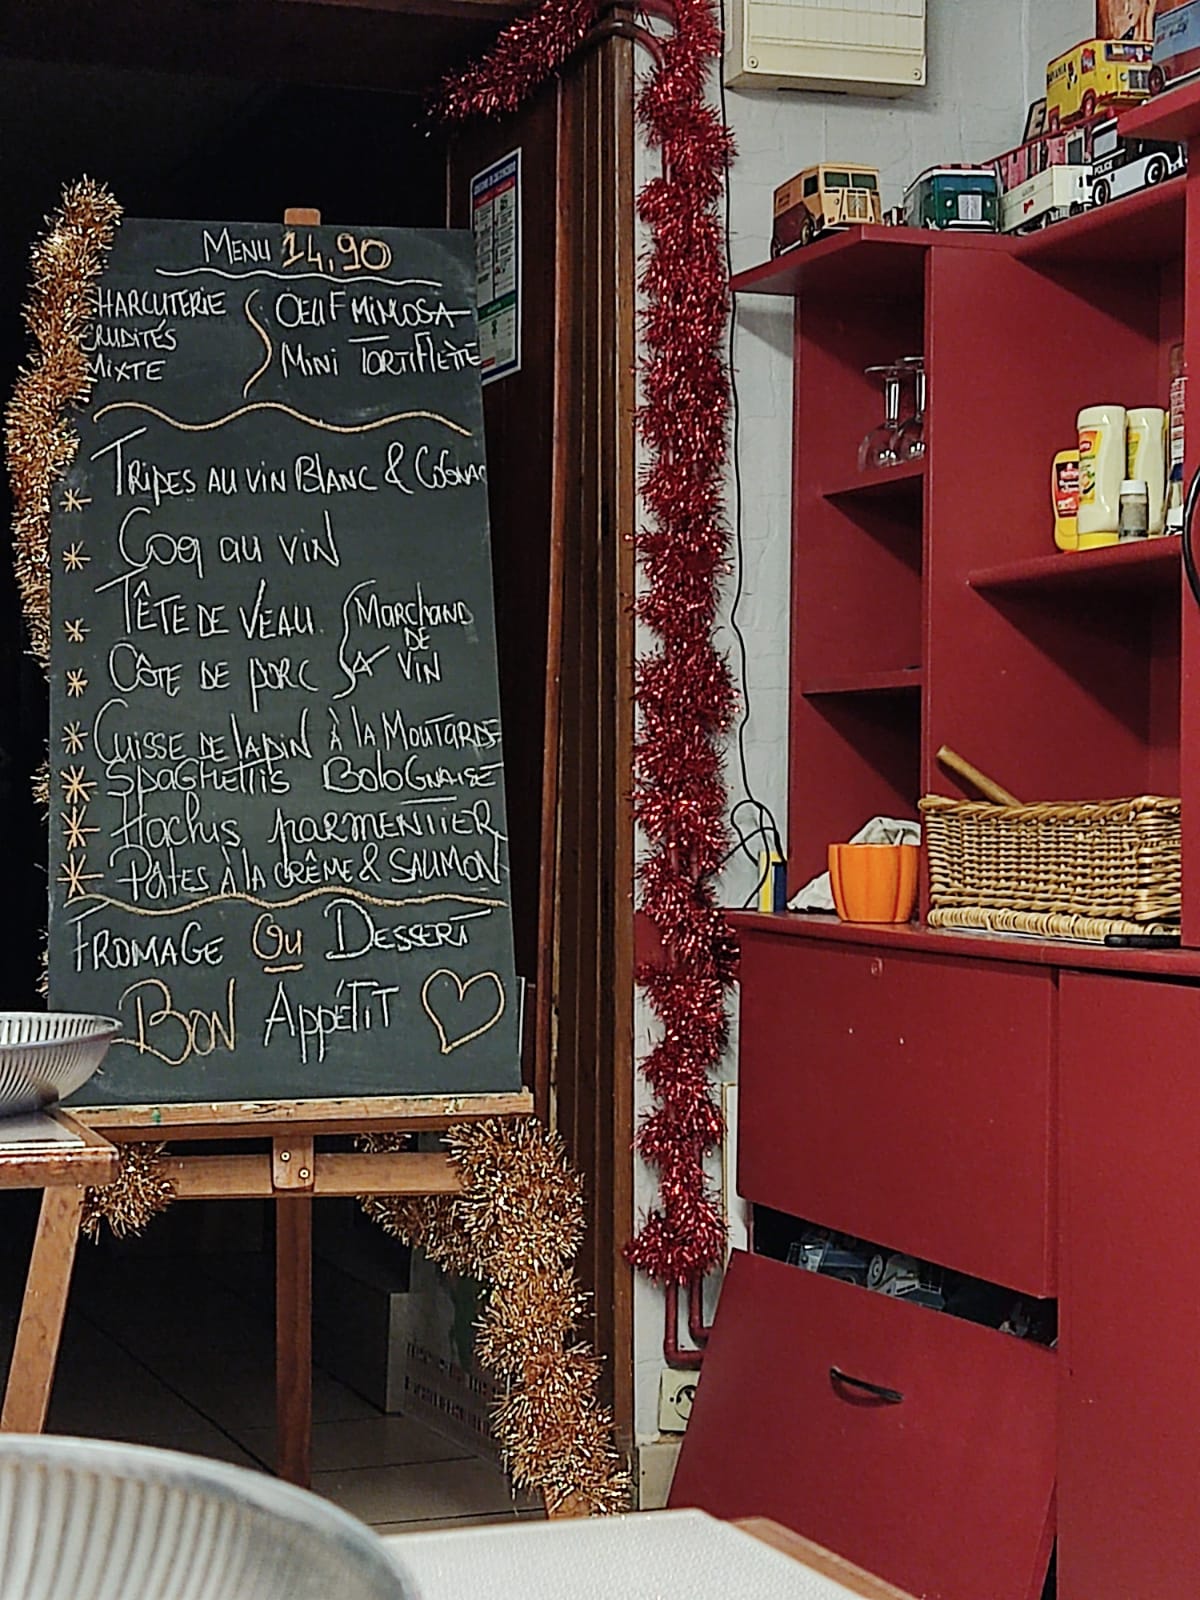 MENU 14,90
HARCUTERIE
CRUDITÉS
MIXTE
OEUF MIMOSA
MINI TORTIFLETTE
TRIPES AU VIN BLANC & COGNAC
COQ AU VIN
TÊTE DE VEAU
CÔTE DE PORC
MARCHAND
DE
VIN
CUISSE DE LAPIN À LA MOUTARDE
SPAGHETTIS BOLOGNAISE
HACHIS PARMENTIER
PÂTES À LA CRÊME & SAUMON
FROMAGE OU DESSERT
BON APPÉTIT
POLICE